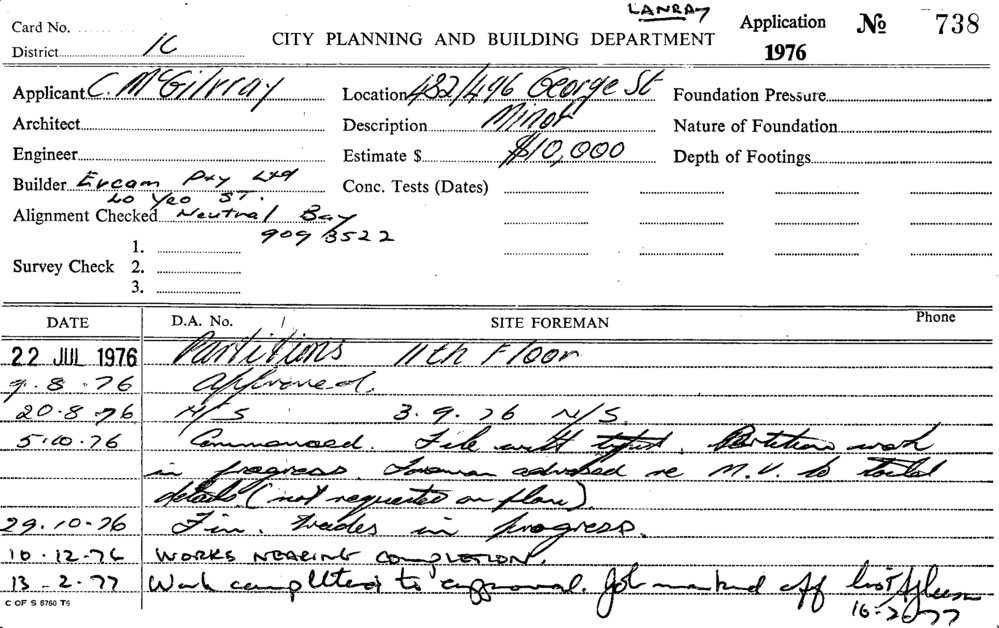 LANRAY
Card No.
District IC
CITY PLANNING AND BUILDING DEPARTMENT
Application № 738
1976
Applicant C. McGilvray
Location 482/496 George St
Foundation Pressure
Architect
Description Minor
Nature of Foundation
Engineer
Estimate $ $10,000
Depth of Footings
Builder Evcam Pty Ltd
Conc. Tests (Dates)
20 Yeo ST.
Alignment Checked Neutral Bay
909 3522
1.
Survey Check 2.
3.
DATE D.A. No. SITE FOREMAN Phone
22 JUL 1976 Partitions 11th Floor
9.8.76 Approved.
20.8.76 N/S 3.9.76 N/S.
5.10.76 Commenced. File with. Partition work
in progress. Foreman advised re M.V. to toilet
details (not requested on plan).
29.10.76 Fin. trades in progress.
10.12.76 WORKS NEARING COMPLETION.
13-2-77 Work completed to approval. Job marked off
16-2-77
C OF S 6760 T6